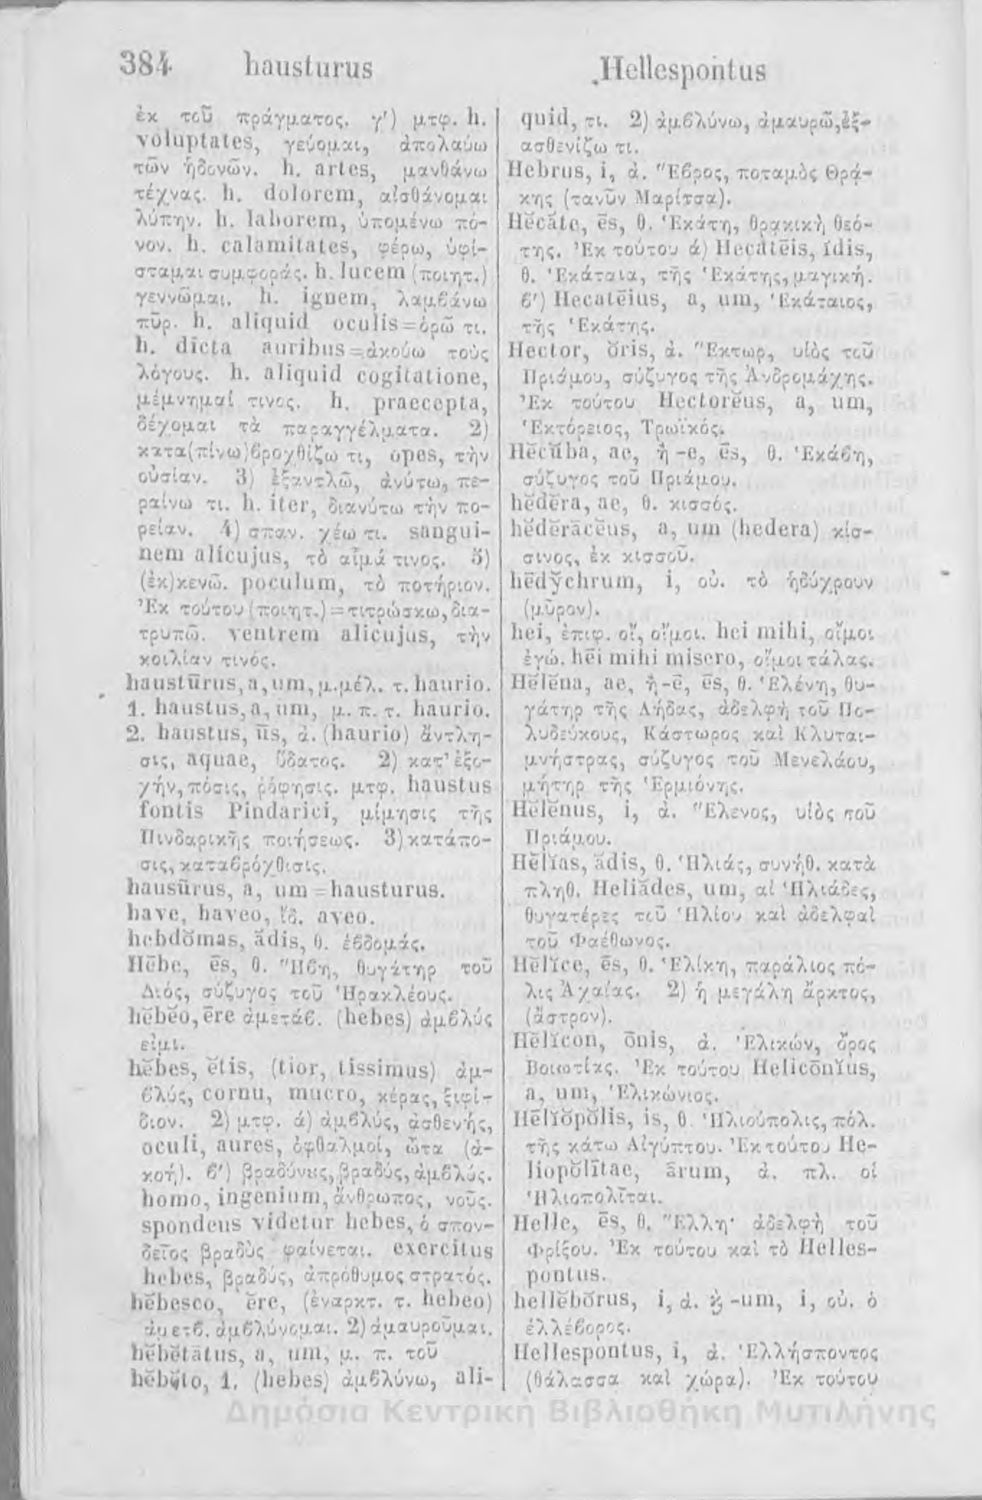 384 hausturus Hellespontus
ἐκ τοῦ πράγματος. γ') μτφ. h.
voluptates, γεύομαι, ἀπολαύω
τῶν ἡδονῶν. h. artes, μανθάνω
τέχνας. h. dolorem, αἰσθάνομαι
λύπην. h. laborem, ὑπομένω πό-
νον. h. calamitates, φέρω, ὑφί-
σταμαι συμφοράς. h. lucem (ποιητ.)
γεννῶμαι. h. ignem, λαμβάνω
πῦρ. h. aliquid oculis=ὁρῶ τι.
h. dicta auribus=ἀκούω τοὺς
λόγους. h. aliquid cogitatione,
μέμνημαί τινος. h. praecepta,
δέχομαι τὰ παραγγέλματα. 2)
κατα(πίνω)βροχθίζω τι, opes, τὴν
οὐσίαν. 3) ἐξαντλῶ, ἀνύτω, πε-
ραίνω τι. h. iter, διανύτω τὴν πο-
ρείαν. 4) σπαν. χέω τι. sangui-
nem alicujus, τὸ αἷμά τινος. 5)
(ἐκ)κενῶ. poculum, τὸ ποτήριον.
Ἐκ τούτου (ποιητ.)=τιτρώσκω, δια-
τρυπῶ. ventrem alicujus, τὴν
κοιλίαν τινός.
haustūrus, a, um, μ. μέλ. τ. haurio.
1. haustus, a, um, μ. π. τ. haurio.
2. haustus, ūs, ἀ. (haurio) ἄντλη-
σις, aquae, ὕδατος. 2) κατ' ἐξο-
χήν, πόσις, ῥόφησις. μτφ. haustus
fontis Pindarici, μίμησις τῆς
Πινδαρικῆς ποιήσεως. 3) κατάπο-
σις, καταβρόχθισις.
hausūrus, a, um=hausturus.
have, haveo, ἴδ. aveo.
hebdŏmas, ădis, θ. ἑβδομάς.
Hēbe, ēs, θ. Ἥβη, θυγάτηρ τοῦ
Διός, σύζυγος τοῦ Ἡρακλέους.
hĕbĕo, ēre ἀμετάβ. (hebes) ἀμβλύς
εἰμι.
hĕbes, ĕtis, (tior, tissimus) ἀμ-
βλύς, cornu, mucro, κέρας, ξιφί-
διον. 2) μτφ. ά) ἀμβλύς, ἀσθενής,
oculi, aures, ὀφθαλμοί, ὦτα (ἀ-
κοή). β') βραδύνους, βραδύς, ἀμβλύς.
homo, ingenium, ἄνθρωπος, νοῦς.
spondeus videtur hebes, ὁ σπον-
δεῖος βραδὺς φαίνεται. exercitus
hebes, βραδύς, ἀπρόθυμος στρατός.
hĕbesco, ĕre, (ἐναρκτ. τ. hebeo)
ἀμετβ. ἀμβλύνομαι. 2) ἀμαυροῦμαι.
hĕbĕtātus, a, um, μ. π. τοῦ
hĕbĕto, 1. (hebes) ἀμβλύνω, ali-
quid, τι. 2) ἀμβλύνω, ἀμαυρῶ, ἐξ-
ασθενίζω τι.
Hebrus, i, ἀ. Ἕβρος, ποταμὸς Θρά-
κης (τανῦν Μαρίτσα).
Hĕcăte, ēs, θ. Ἑκάτη, θρᾳκικὴ θεό-
της. Ἐκ τούτου ά) Hecatēis, ĭdis,
θ. Ἑκάταια, τῆς Ἑκάτης, μαγική.
β') Hecatēius, a, um, Ἑκάταιος,
τῆς Ἑκάτης.
Hector, ŏris, ἀ. Ἕκτωρ, υἱὸς τοῦ
Πριάμου, σύζυγος τῆς Ἀνδρομάχης.
Ἐκ τούτου Hectorĕus, a, um,
Ἑκτόρειος, Τρωϊκός.
Hĕcŭba, ae, ἢ -e, ēs, θ. Ἑκάβη,
σύζυγος τοῦ Πριάμου.
hĕdĕra, ae, θ. κισσός.
hĕdĕrācĕus, a, um (hedera) κίσ-
σινος, ἐκ κισσοῦ.
hēdy̆chrum, i, οὐ. τὸ ἡδύχρουν
(μῦρον).
hei, ἐπιφ. οἴ, οἴμοι. hei mihi, οἴμοι
ἐγώ. hei mihi misero, οἴμοι τάλας.
Hĕlĕna, ae, ἢ -ē, ēs, θ. Ἑλένη, θυ-
γάτηρ τῆς Λήδας, ἀδελφὴ τοῦ Πο-
λυδεύκους, Κάστωρος καὶ Κλυται-
μνήστρας, σύζυγος τοῦ Μενελάου,
μήτηρ τῆς Ἑρμιόνης.
Hĕlĕnus, i, ἀ. Ἕλενος, υἱὸς τοῦ
Πριάμου.
Hēlĭas, ădis, θ. Ἡλιάς, συνήθ. κατὰ
πληθ. Heliădes, um, αἱ Ἡλιάδες,
θυγατέρες τοῦ Ἡλίου καὶ ἀδελφαὶ
τοῦ Φαέθωνος.
Hĕlĭce, ēs, θ. Ἑλίκη, παράλιος πό-
λις Ἀχαίας. 2) ἡ μεγάλη ἄρκτος,
(ἄστρον).
Hĕlĭcon, ōnis, ἀ. Ἑλικών, ὄρος
Βοιωτίας. Ἐκ τούτου Helicōnĭus,
a, um, Ἑλικώνιος.
Hēlĭŏpŏlis, is, θ. Ἡλιούπολις, πόλ.
τῆς κάτω Αἰγύπτου. Ἐκ τούτου He-
liopŏlītae, ārum, ἀ. πλ. οἱ
Ἡλιοπολῖται.
Helle, ēs, θ. Ἕλλη· ἀδελφὴ τοῦ
Φρίξου. Ἐκ τούτου καὶ τὸ Helles-
pontus.
hellĕbŏrus, i, ἀ. ϗ -um, i, οὐ. ὁ
ἑλλέβορος.
Hellespontus, i, ἀ. Ἑλλήσποντος
(θάλασσα καὶ χώρα). Ἐκ τούτου
Δημόσια Κεντρική Βιβλιοθήκη Μυτιλήνης